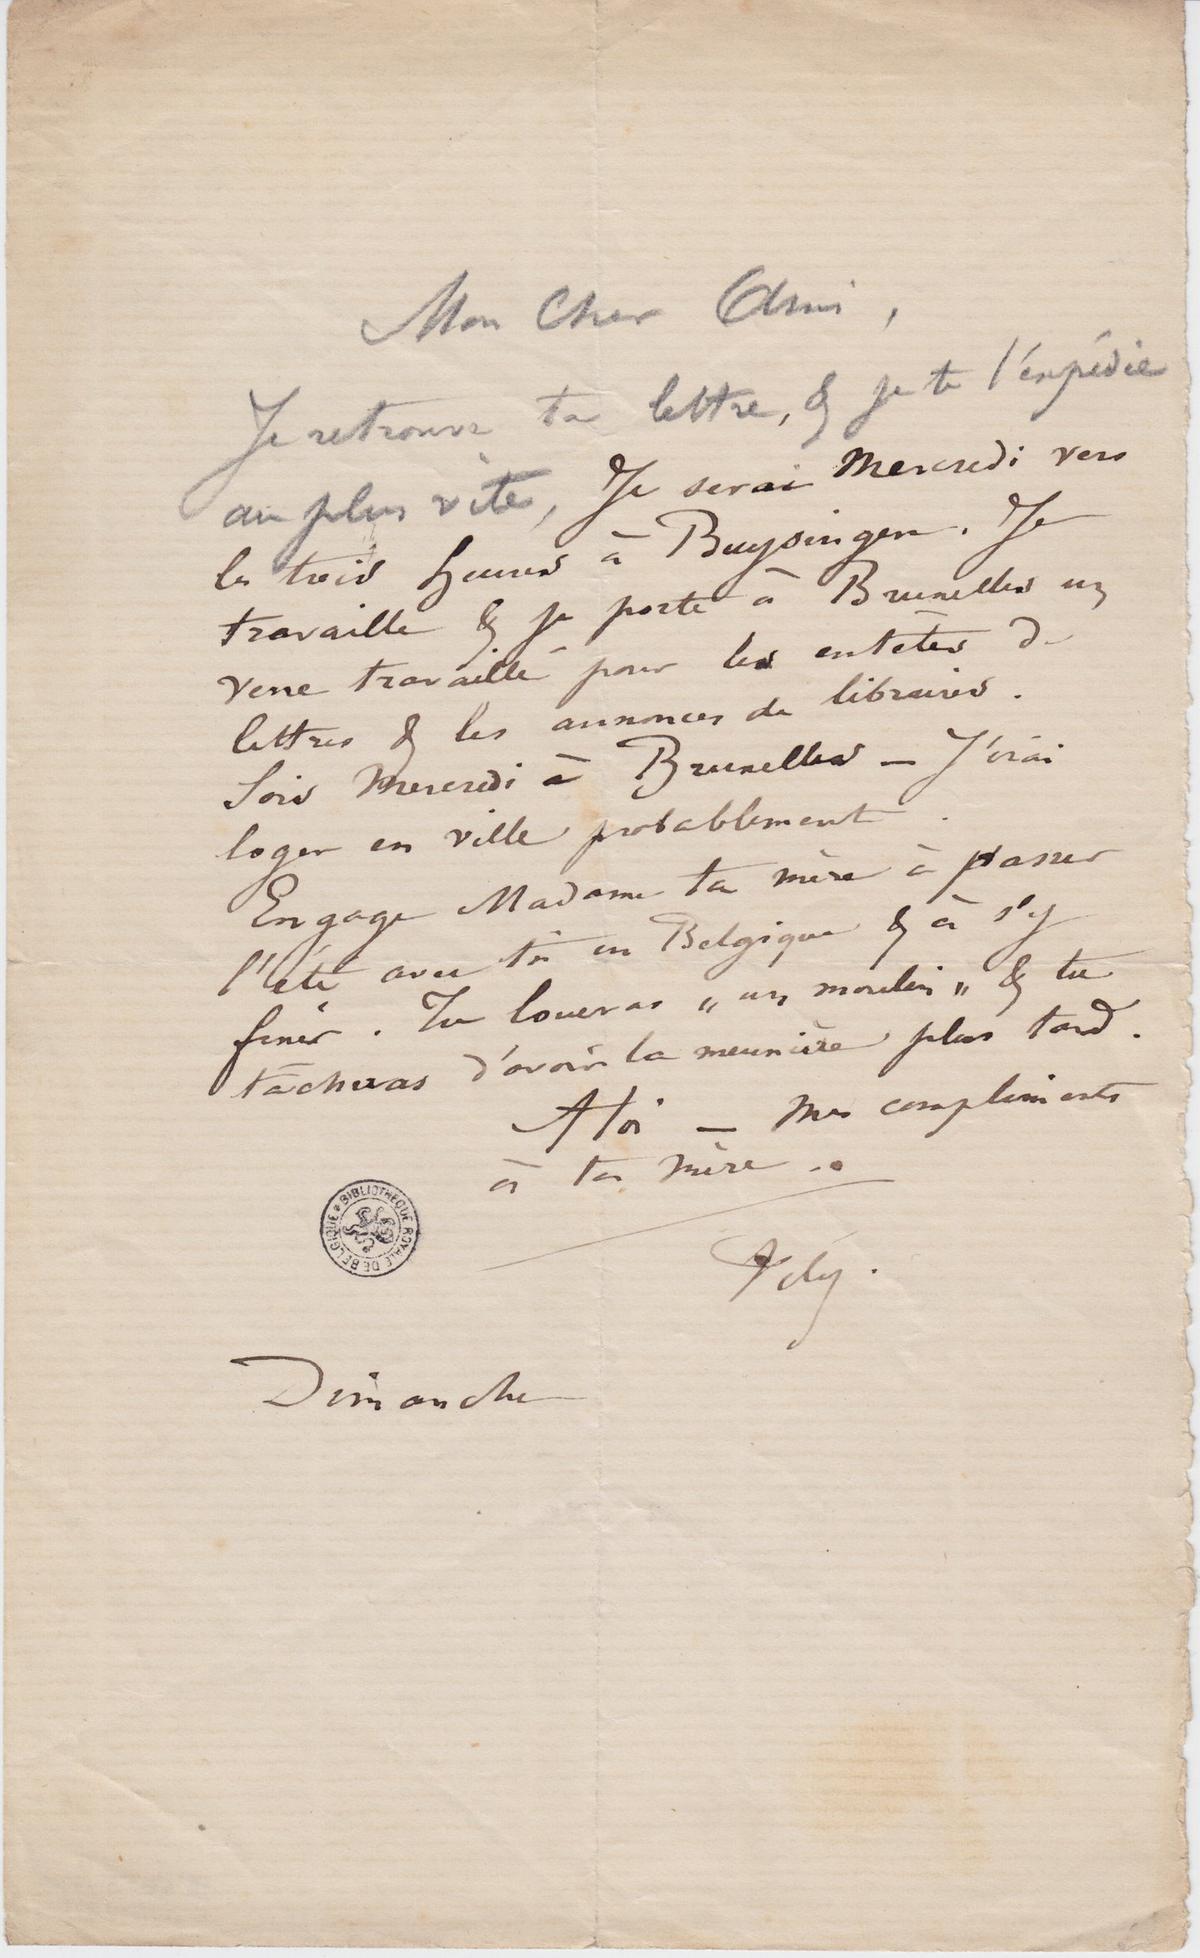 Mon Cher Ami,
Je retrouve ta lettre, & je te l'expédie
au plus vite, Je serai Mercredi vers
les trois heures à Buysingen. Je
travaille & je porte à Bruxelles un
verre travaillé pour les entêtes de
lettres & les annonces de libraires.
Sois Mercredi à Bruxelles — J'irai
loger en ville probablement.
Engage Madame ta mère à passer
l'été avec toi en Belgique & à s'y
fixer. Tu loueras „un moulin„ & tu
tâcheras d'avoir la meunière plus tard.
A toi — Mes compliments
à ta mère..
Fély.
BIBLIOTHEQUE ROYALE DE BELGIQUE
Dimanche